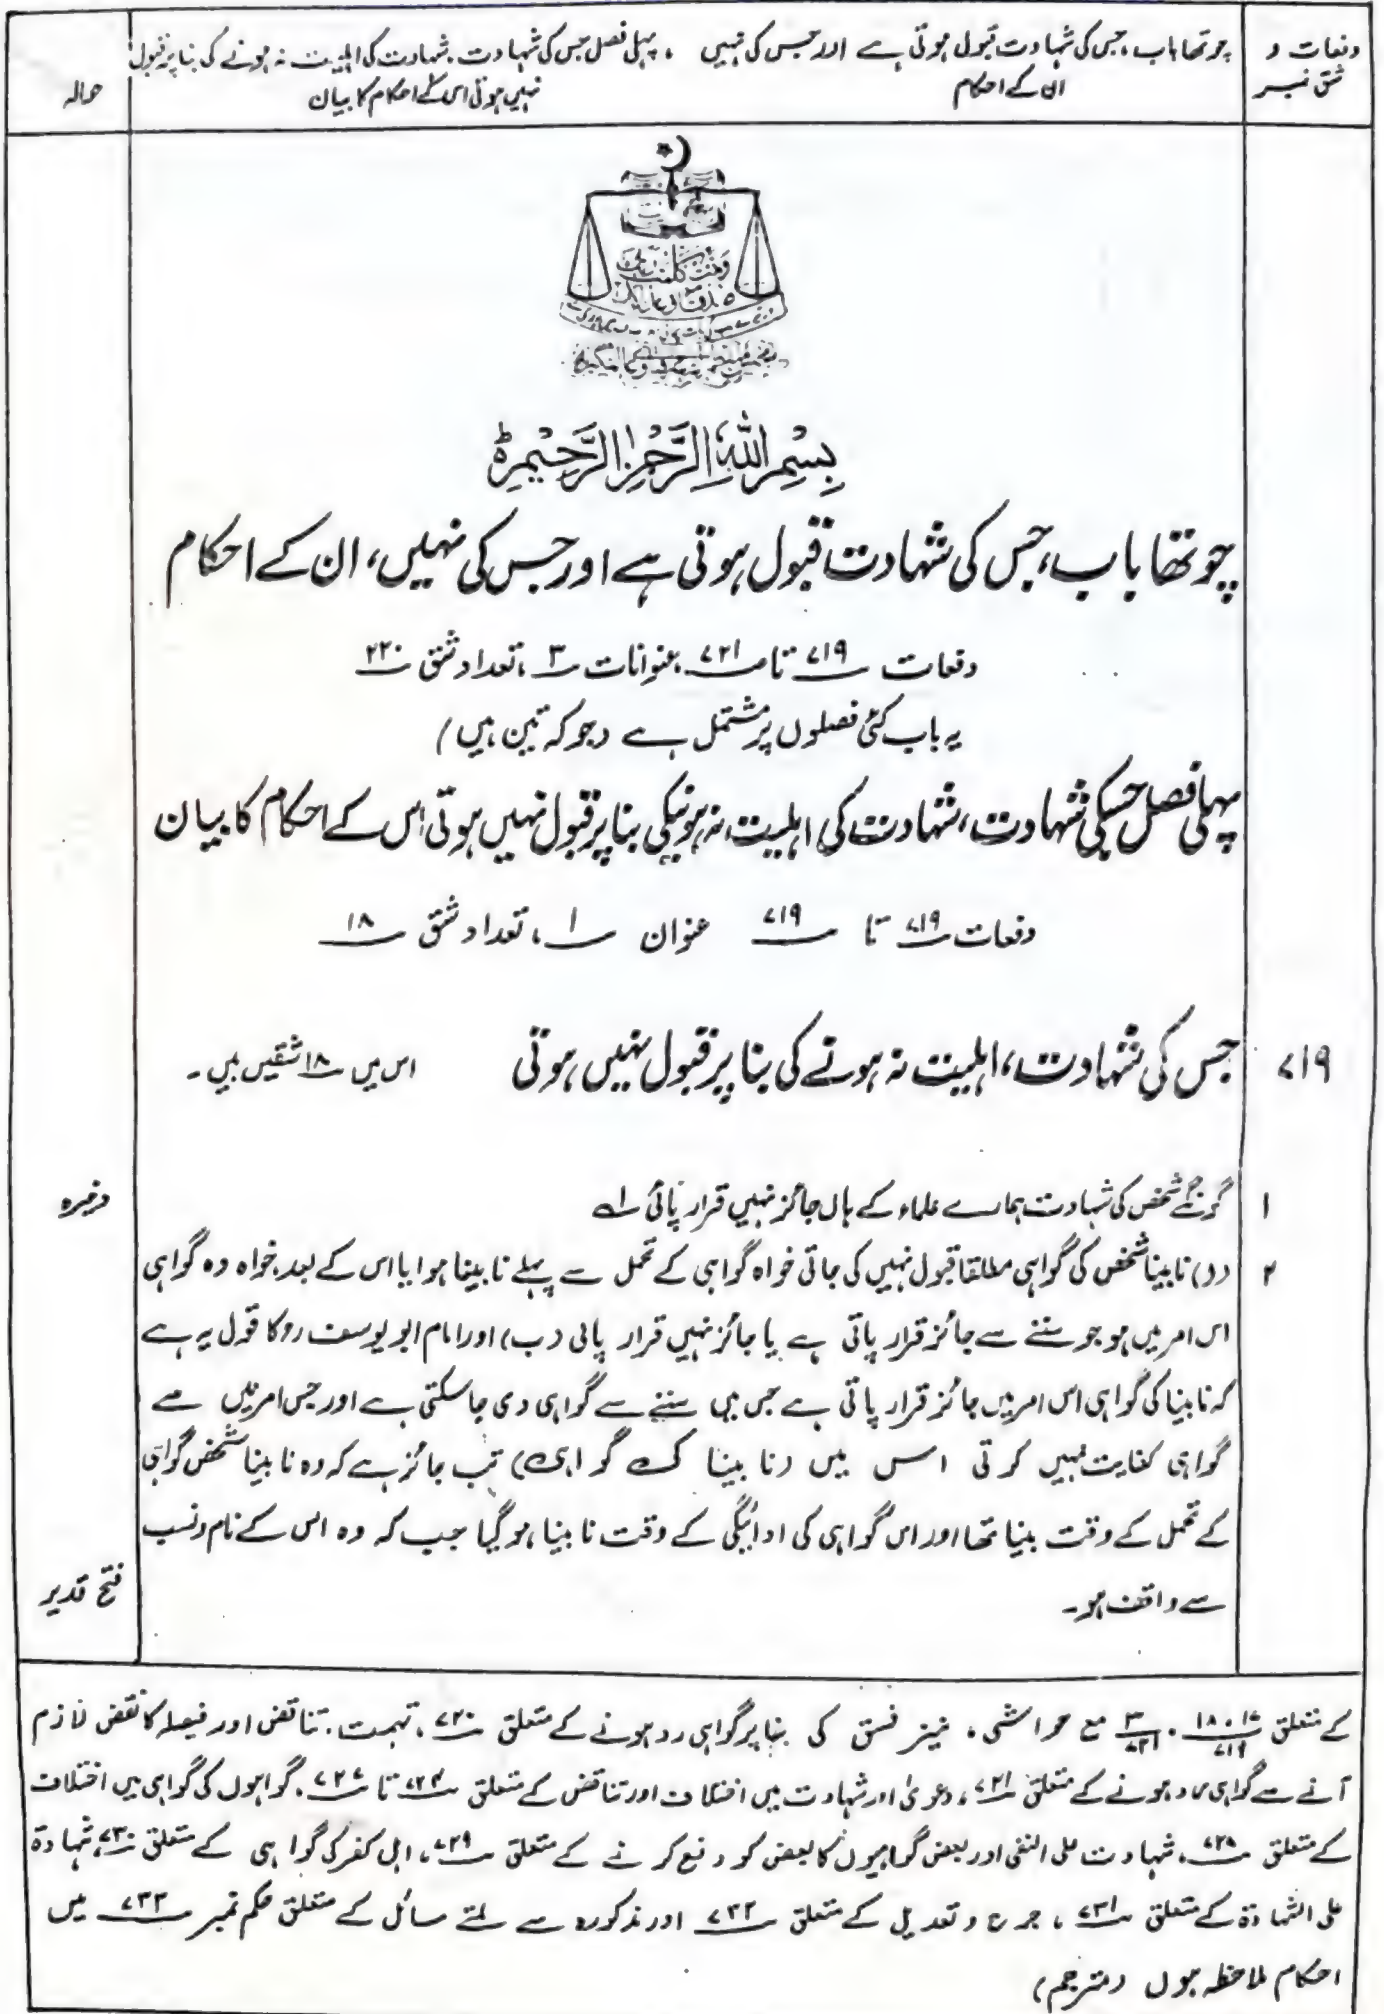 دفعات و شق نمبر
چوتھا باب، جس کی شہادت قبول ہوتی ہے اور جس کی نہیں ان کے احکام
، پہلی فصل جس کی شہادت، شہادت کی اہلیت نہ ہونے کی بنا پر قبول نہیں ہوتی اس کے احکام کا بیان
حوالہ
بِسْمِ اللّٰہِ الرَّحْمٰنِ الرَّحِیْمِ ۃ
چوتھا باب، جس کی شہادت قبول ہوتی ہے اور جس کی نہیں، ان کے احکام
دفعات ۷۱۹ تا ۷۲۱، عنوانات ۳، تعداد شق ۲۲۰
یہ باب کئی فصلوں پر مشتمل ہے (جو کہ تین ہیں)
پہلی فصل جسکی شہادت، شہادت کی اہلیت نہ ہونیکی بنا پر قبول نہیں ہوتی اس کے احکام کا بیان
دفعات ۷۱۹ تا ۷۱۹ عنوان ۱، تعداد شق ۱۸
۷۱۹ جس کی شہادت، اہلیت نہ ہونے کی بنا پر قبول نہیں ہوتی اس میں ۱۸ شقیں ہیں۔
۱ گونگے شخص کی شہادت ہمارے علماء کے ہاں جائز نہیں قرار پائی ۱ے ذخیرہ
۲ (ا) نابینا شخص کی گواہی مطلقا قبول نہیں کی جاتی خواہ گواہی کے تحمل سے پہلے نابینا ہوا یا اس کے بعد، خواہ وہ گواہی
اس امر میں ہو جو سننے سے جائز قرار پاتی ہے یا جائز نہیں قرار پاتی (ب) اور امام ابو یوسف رح کا قول یہ ہے
کہ نابینا کی گواہی اس امر میں جائز قرار پاتی ہے جس میں سننے سے گواہی دی جا سکتی ہے اور جس امر میں سے
گواہی کفایت نہیں کرتی اس میں (نابینا کی گواہی) تب جائز ہے کہ وہ نابینا شخص گواہی
کے تحمل کے وقت بینا تھا اور اس گواہی کی ادائیگی کے وقت نابینا ہو گیا جب کہ وہ اس کے نام و نسب
سے واقف ہو۔ فتح قدیر
کے متعلق ۱۷، ۱۸/۷۱۹، ۳/۷۲۱ مع حواشی، نیز فسق کی بنا پر گواہی رد ہونے کے متعلق ۷۲۰، تہمت، تناقض اور فیصلہ کا نقض لازم
آنے سے گواہی رد ہونے کے متعلق ۷۲۱، دعویٰ اور شہادت میں اختلاف اور تناقض کے متعلق ۷۲۴ تا ۷۲۷، گواہوں کی گواہی میں اختلاف
کے متعلق ۷۲۸، شہادت علی النفی اور بعض گواہیوں کا بعض کو دفع کرنے کے متعلق ۷۲۹، اہل کفر کی گواہی کے متعلق ۷۳۰، شہادۃ
علی الشہادۃ کے متعلق ۷۳۱، جرح و تعدیل کے متعلق ۷۳۲ اور مذکورہ سے ملتے مسائل کے متعلق حکم نمبر ۷۳۳ میں
احکام ملاحظہ ہوں (مترجم)